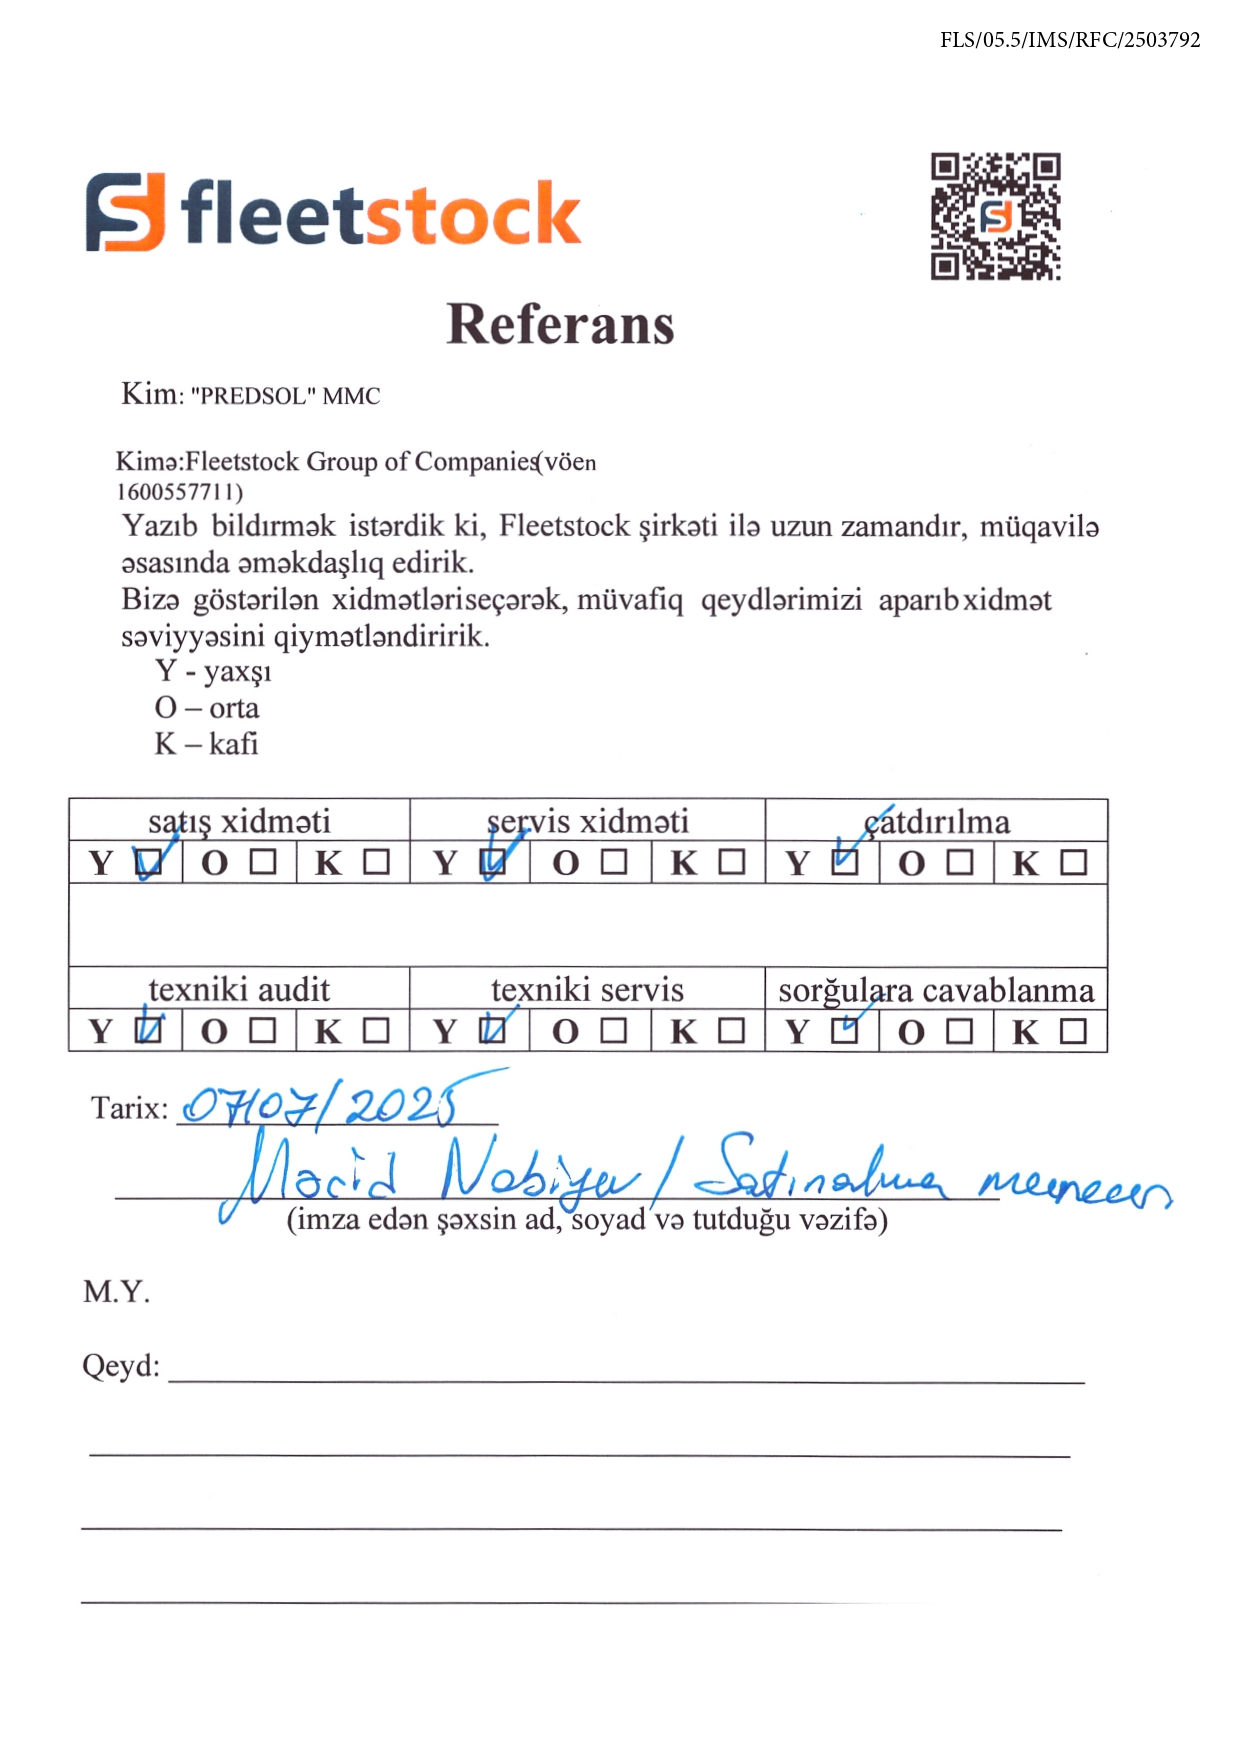 FLS/05.5/IMS/RFC/2503792
fleetstock
Referans
Kim: "PREDSOL" MMC
Kimə:Fleetstock Group of Companies(vöen
1600557711)
Yazıb bildırmək istərdik ki, Fleetstock şirkəti ilə uzun zamandır, müqavilə
əsasında əməkdaşlıq edirik.
Bizə göstərilən xidmətləriseçərək, müvafiq qeydlərimizi aparıbxidmət
səviyyəsini qiymətləndiririk.
Y - yaxşı
O – orta
K – kafi
satış xidməti servis xidməti çatdırılma
Y ☑ O ☐ K ☐ Y ☑ O ☐ K ☐ Y ☑ O ☐ K ☐
texniki audit texniki servis sorğulara cavablanma
Y ☑ O ☐ K ☐ Y ☑ O ☐ K ☐ Y ☑ O ☐ K ☐
Tarix: 07/07/2025
Məcid Nəbiyev / Satınalma
(imza edən şəxsin ad, soyad və tutduğu vəzifə)
M.Y.
Qeyd: